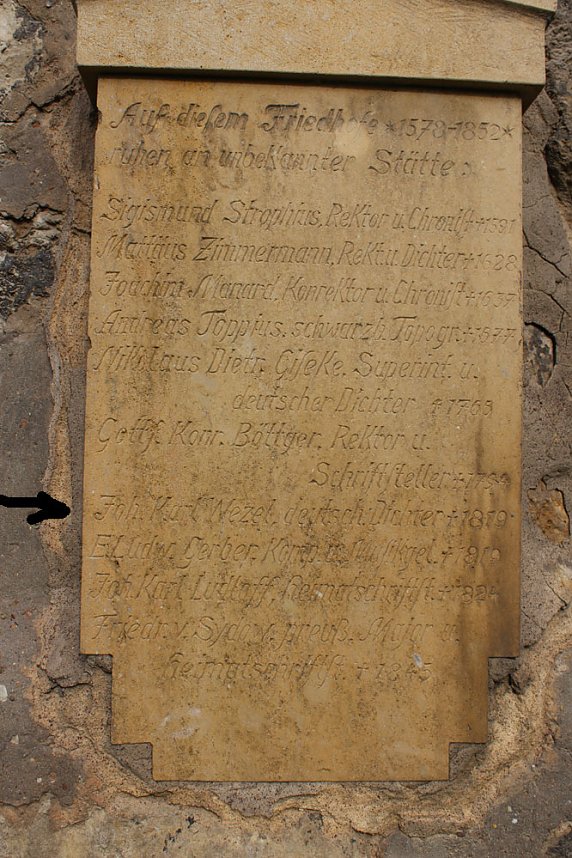 Auf diesem Friedhofe *1578-1852*
ruhen an unbekannter Stätte:
Sigismund Strophius, Rektor u. Chronist +1591
Mattäus Zimmermann, Rekt. u. Dichter +1628
Joachim Manard, Konrektor u. Chronist +1637
Andreas Toppius, schwarzb. Topogr. +1677
Nikolaus Dietr. Giseke, Superint. u.
deutscher Dichter +1765
Gottf. Konr. Böttger, Rektor u.
Schriftsteller
Joh. Karl Wezel, deutsch. Dichter +1819
E. Ludw. Gerber, Komp. u. Musikgel. +1819
Joh. Karl Ludloff, Heimatschriftst. +1824
Friedr. v. Sydow, preuß. Major u.
Heimatschriftst. +1845